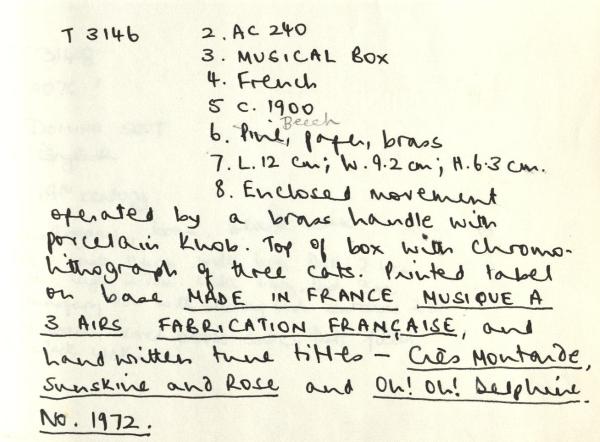 T 3146 2. AC 240
3. MUSICAL BOX
4. French
5 c. 1900
Beech
6. Pine, paper, brass
7. L. 12 cm; W. 9.2 cm; H. 6.3 cm.
8. Enclosed movement
operated by a brass handle with
porcelain knob. Top of box with chromo-
lithograph of three cats. Printed label
on base MADE IN FRANCE MUSIQUE A
3 AIRS FABRICATION FRANÇAISE, and
handwritten tune titles – Cres Montande,
Sunshine and Rose and Oh! Oh! Delphine.
No. 1972.